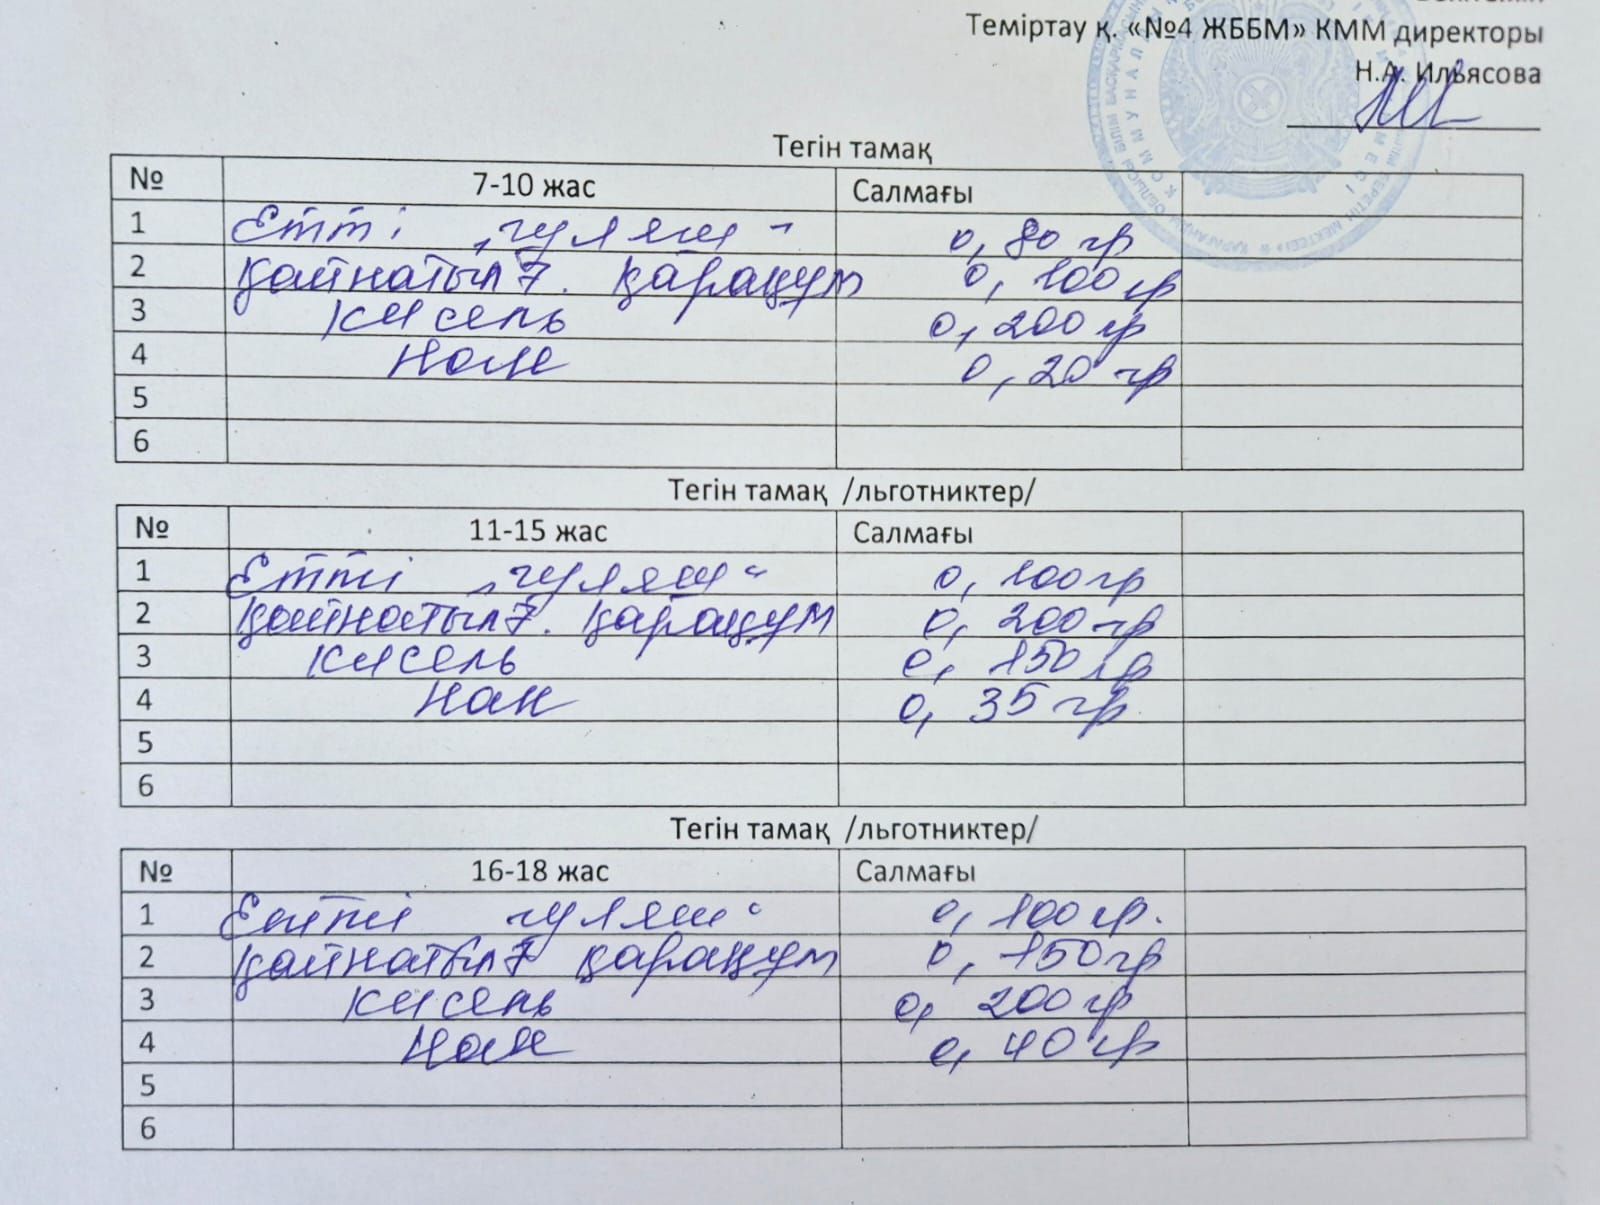 Теміртау қ. «№4 ЖББМ» КММ директоры
Н.А. Ильясова
Тегін тамақ
№ 7-10 жас Салмағы
1 Етті „гуляш" 0, 80 гр
2 Қайнатылғ. қарақұм 0, 100 гр
3 Кисель 0, 200 гр
4 Нан 0, 20 гр
5
6
Тегін тамақ /льготниктер/
№ 11-15 жас Салмағы
1 Етті „гуляш" 0, 100 гр
2 Қайнатылғ. қарақұм 0, 200 гр
3 Кисель 0, 150 гр
4 Нан 0, 35 гр
5
6
Тегін тамақ /льготниктер/
№ 16-18 жас Салмағы
1 Етті гуляш" 0, 100 гр.
2 Қайнатылғ қарақұм 0, 150 гр
3 Кисель 0, 200 гр
4 Нан 0, 40 гр
5
6